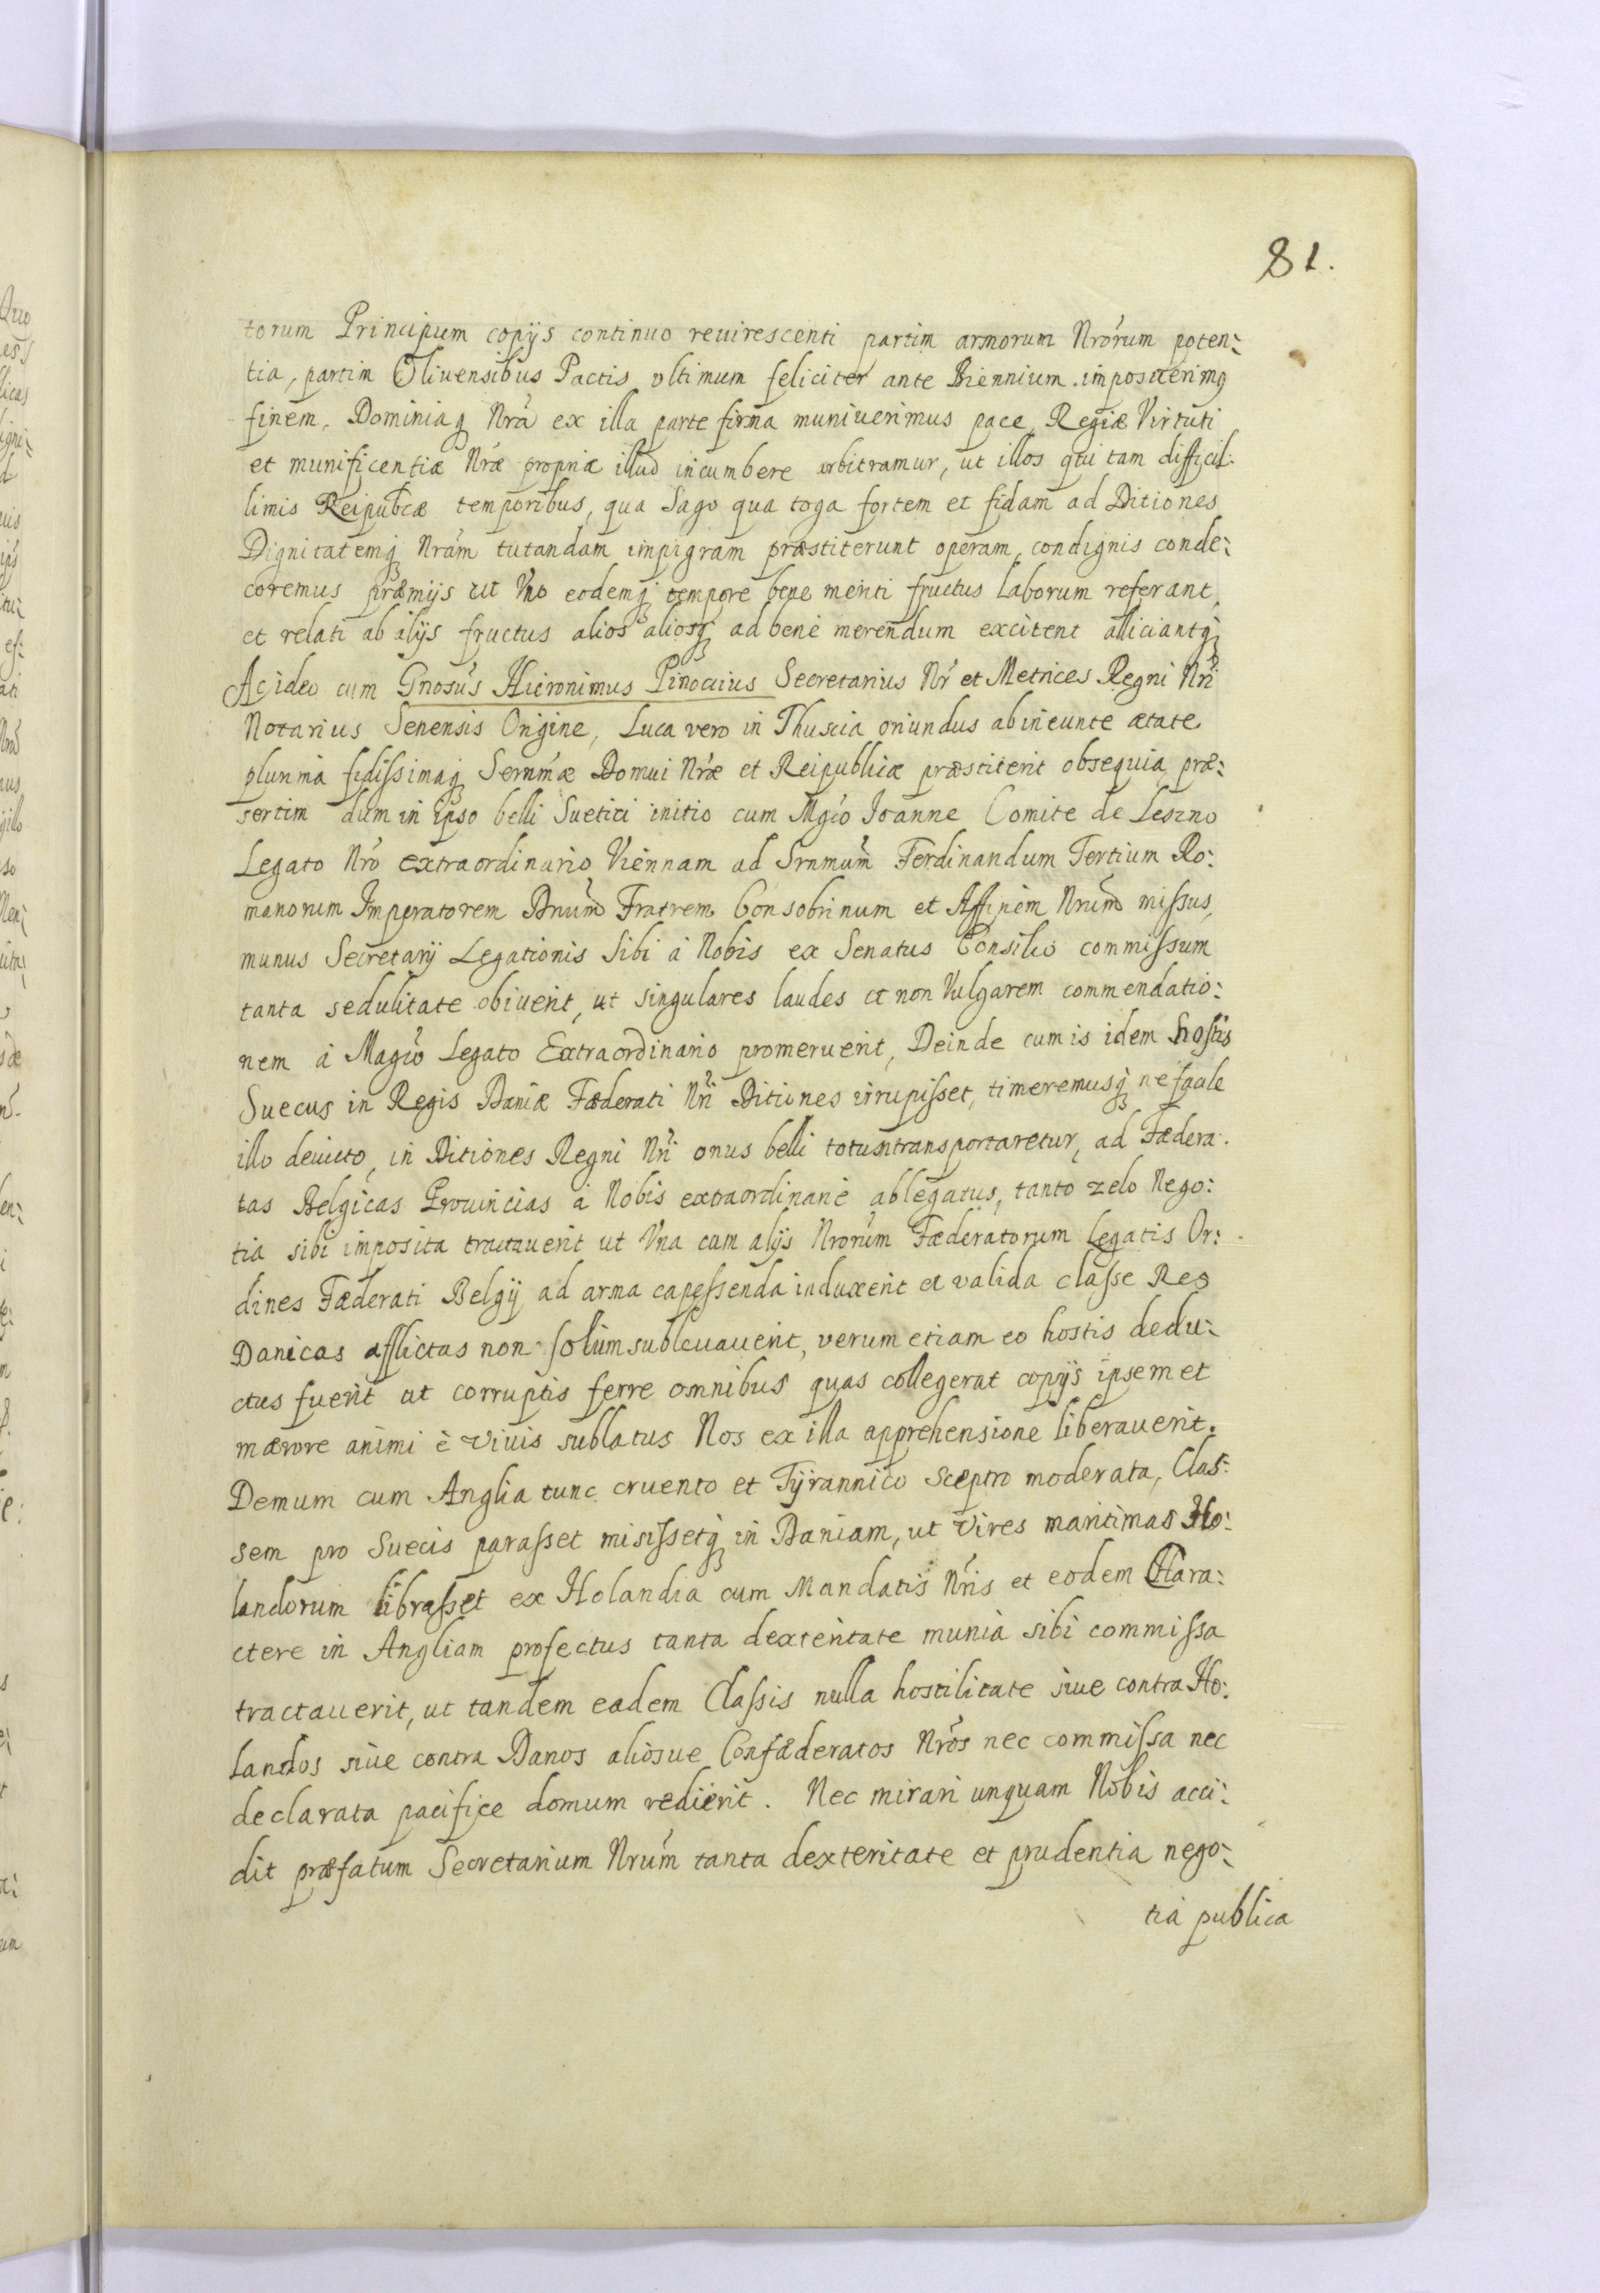 81.
torum Principum copijs continuo reuirescenti partim armorum Nrórum poten:
tia, partim Oliuensibus Pactis vltimum feliciter ante Biennium imposuerimq
finem, Dominiaq Nrá ex illa parte firma muniuerimus pace, Regiæ Virtuti
et munificentiæ Nræ propriæ illud incumbere arbitramur, ut illos qui tam difficil:
limis Reipubcæ temporibus, qua Sago qua toga fortem et fidam ad Ditiones
Dignitatemq Nrám tutandam impigram præstiterunt operam, condignis conde:
coremus præmijs ut Vno eodemq tempore bene meriti fructus laborum referant,
et relati ab alijs fructus alios aliosq ad bene merendum excitent alliciantq
Ac ideo cum Gnosús Hieronimus Pinocius Secretarius Nr et Metrices Regni Nri
Notarius Senensis Origine, Luca vero in Thuscia oriundus ab ineunte ætate
plurima fidissimaq Sernmæ Domui Nræ et Reipublicæ præstiterit obsequia, præ:
sertim dum in ipso belli Suetici initio cum Mgco Joanne Comite de Leszno
Legato Nró extraordinario Viennam ad Srnmum Ferdinandum Tertium Ro:
manorum Imperatorem Dnum Fratrem Consobrinum et Affinem Nrum missus,
munus Secretarij Legationis Sibi á Nobis ex Senatus Consilio commissum
tanta sedulitate obiuerit, ut singulares laudes et non Vulgarem commendatio:
nem á Magco Legato Extraordinario promeruerit, Deinde cum is idem hostis
Suecus in Regis Daniæ Fæderati Nri Ditiones irrupisset, timeremusq ne facile
illo deuicto, in Ditiones Regni Nri onus belli totum transportaretur, ad Fædera:
tas Belgicas Prouincias á Nobis extraordinarie ablegatus, tanto zelo Nego:
tia sibi imposita tractauerit ut Vna cum alijs Nrorum Fæderatorum Legatis Or:
dines Fæderati Belgij ad arma capessenda induxerit et valida classe Res
Danicas afflictas non solùm subleuauerit, verum etiam eo hostis dedu:
ctus fuerit ut corruptis ferre omnibus quas collegerat copijs ipsemet
mærore animi è viuis sublatus Nos ex illa apprehensione liberauerit.
Demum cum Anglia tunc cruento et Tyrannico Sceptro moderata, Clas:
sem pro Suecis parasset misissetq in Daniam, ut Vires maritimas Ho:
landorum librasset ex Holandia cum Mandatis Nris et eodem Chara:
ctere in Angliam profectus tanta dexteritate munia sibi commissa
tractauerit, ut tandem eadem Classis nulla hostilitate siue contra Ho:
landos siue contra Danos aliosue Confæderatos Nros nec commissa nec
declarata pacifice domum redierit. Nec mirari unquam Nobis acci:
dit præfatum Secretarium Nrum tanta dexteritate et prudentia nego:
tia publica